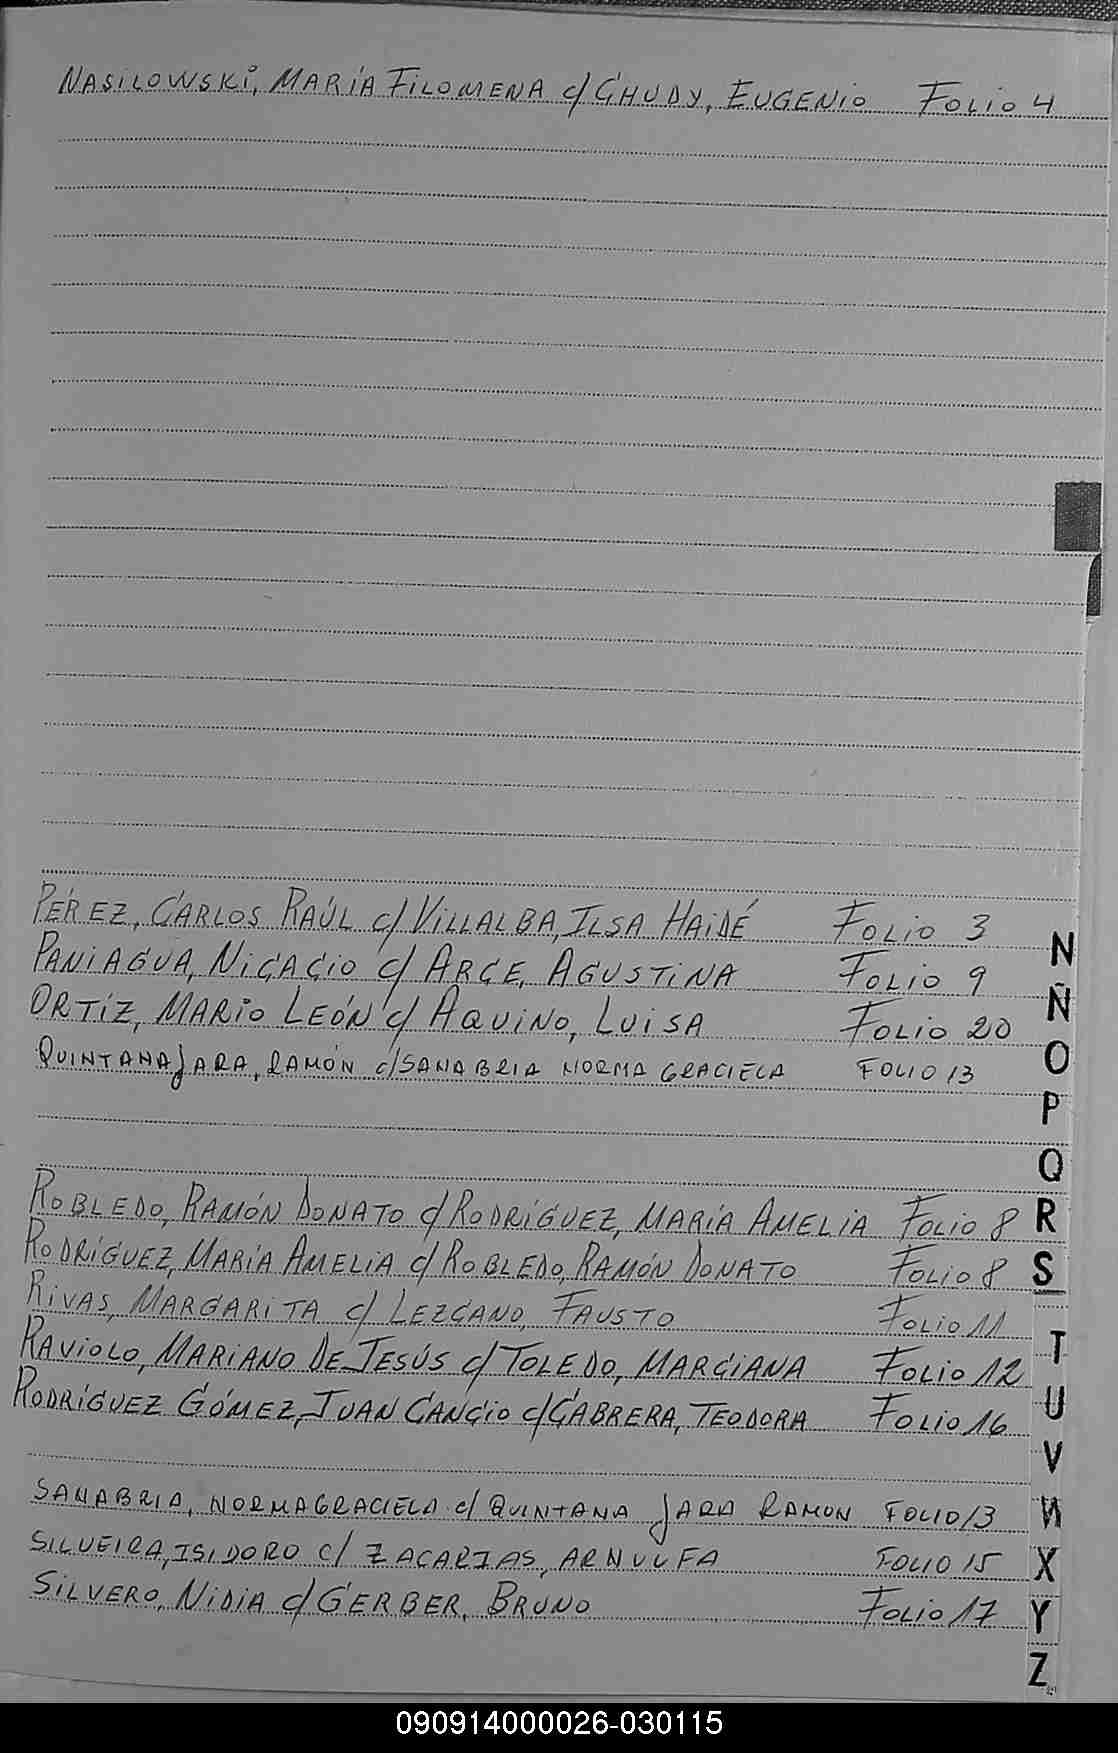 NASILOWSKI, MARÍA FILOMENA c/ CHUDY, EUGENIO FOLIO 4
PÉREZ, CARLOS RAÚL c/ VILLALBA, ILSA HAIDÉ FOLIO 3
PANIAGUA, NICACIO c/ ARCE, AGUSTINA FOLIO 9
ORTÍZ, MARIO LEÓN c/ AQUINO, LUISA FOLIO 20
QUINTANA JARA, RAMÓN c/ SANABRIA NORMA GRACIELA FOLIO 13
ROBLEDO, RAMÓN DONATO c/ RODRÍGUEZ, MARÍA AMELIA FOLIO 8
RODRÍGUEZ, MARÍA AMELIA c/ ROBLEDO, RAMÓN DONATO FOLIO 8
RIVAS, MARGARITA c/ LEZCANO, FAUSTO FOLIO 11
RAVIOLO, MARIANO DE JESÚS c/ TOLEDO, MARCIANA FOLIO 12
RODRÍGUEZ GÓMEZ, JUAN CANCIO c/ CABRERA, TEODORA FOLIO 16
SANABRIA, NORMA GRACIELA c/ QUINTANA JARA RAMON FOLIO 13
SILVEIRA, ISIDORO c/ ZACARIAS, ARNULFA FOLIO 15
SILVERO, NIDIA c/ GERBER, BRUNO FOLIO 17
N
Ñ
O
P
Q
R
S
T
U
V
W
X
Y
Z
090914000026-030115